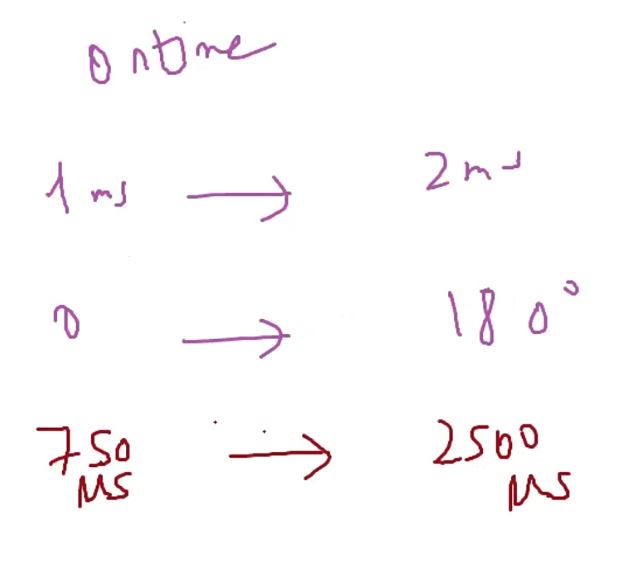 ontime
1 ms → 2 ms
0 → 180°
750 → 2500
μs μs